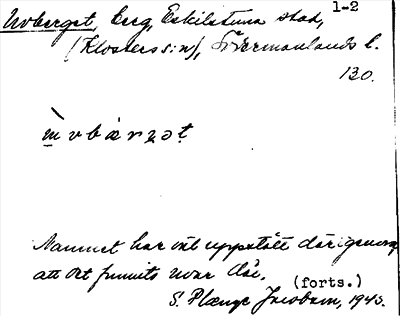 1-2
Uvberget, berg, Eskilstuna stad,
(Klosters s:n), Södermanlands l.
130.
Namnet har väl uppstått därigenom
att det funnits uvar där.
(forts.)
S. Plænge Jacobson, 1945.